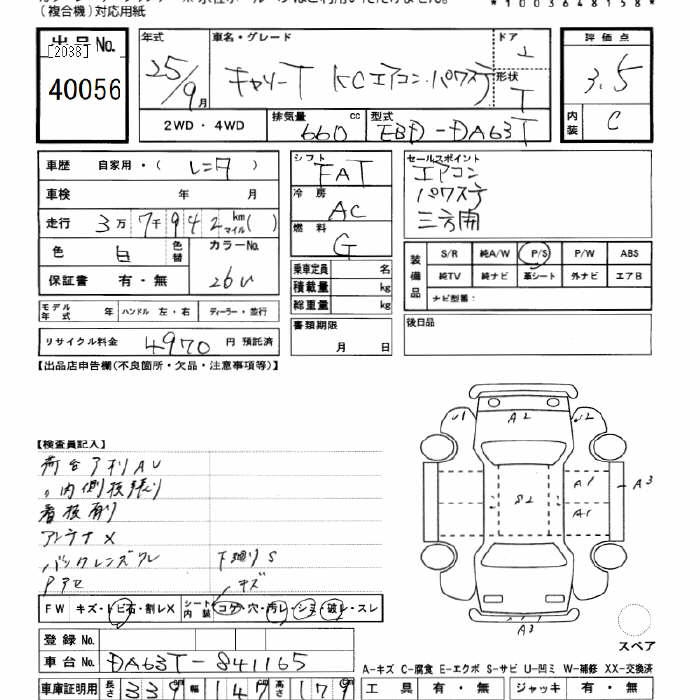 (複合機)対応用紙
*1003648158*
出品No.
[2038]
40056
年式 車名・グレード ドア
25/9月 キャリーT KCエアコン・パワステ 2
形状 T
2WD・4WD 排気量 660 cc 型式 EBD-DA63T
評価点
3.5
内装 C
車歴 自家用・( レンタ )
車検 年 月
走行 3万7千942 km マイル( )
色 白 色替 カラーNo. 26U
保証書 有・無
モデル年式 年 ハンドル 左・右 ディーラー・並行
リサイクル料金 4970 円 預託済
シフト FAT
冷房 AC
燃料 G
乗車定員 名
積載量 kg
総重量 kg
書類期限
月 日
セールスポイント
エアコン
パワステ
三方開
装備品 S/R 純A/W P/S P/W ABS
純TV 純ナビ 革シート 外ナビ エアB
ナビ型番:
後日品
【出品店申告欄(不良箇所・欠品・注意事項等)】
【検査員記入】
荷台アオリAU
〃内側板張り
看板有り
アンテナX
バックレンズワレ 下廻りS
Pアセ キズ
FW キズ・トビ石・割レX シート内装 コゲ・穴・汚レ・シミ・破レ・スレ
登録No.
車台No. DA63T-841165
車庫証明用 長さ 339 幅 147 高さ 179
U1 A2 U2
S2 A1 A3
A1
A3
スペア
A-キズ C-腐食 E-エクボ S-サビ U-凹ミ W-補修 XX-交換済
工具 有・無 ジャッキ 有・無